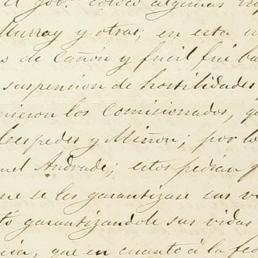 el gob. 
Murray y otras; en esta
de Cañón y fusil fué
suspension de hostilidades
nieron los Comisionados,
Cespedes y Miñon; por lo
Andrade; estos pedian
se les garantizase sus
garantizandole sus vidas
que en cuanto á la